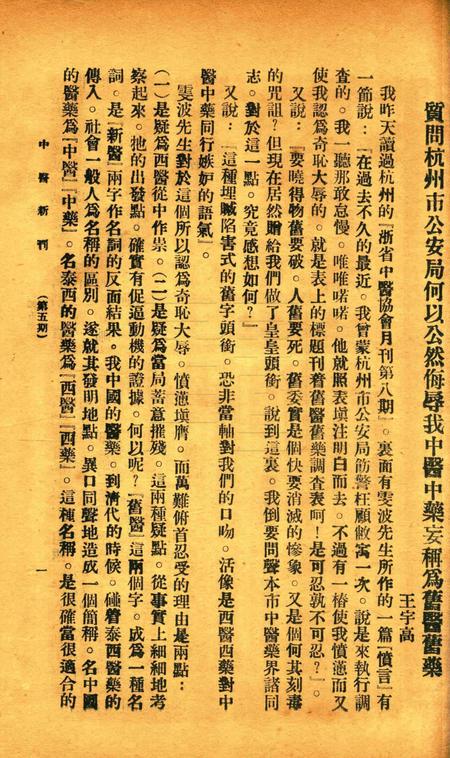 質問杭州市公安局何以公然侮辱我中醫中藥妄稱爲舊醫舊藥
王宇高
我昨天讀過杭州的『浙省中醫協會月刊第八期』。裏面有雯波先生所作的一篇『憤言』有
一節說：『在過去不久的最近。我曾蒙杭州市公安局筋警枉顧敝寓一次。說是來執行調
查的。我一聽那敢怠慢。唯唯喏喏。他就照表塡注明白而去。不過有一樁使我憤懣而又
使我認爲奇恥大辱的。就是表上的標題刊着舊醫舊藥調査表呵！是可忍孰不可忍？』。
又說：『要曉得物舊要破。人舊要死。舊委實是個快要消滅的慘象。又是個何其刻毒
的咒詛？但現在居然贈給我們做了皇皇頭銜。說到這裏。我倒要問聲本市中醫藥界諸同
志。對於這一點。究竟感想如何？』
又說：『這種埋贓陷害式的舊字頭銜。恐非當軸對我們的口吻。活像是西醫西藥對中
醫中藥同行嫉妒的語氣』。
雯波先生對於這個所以認爲奇恥大辱。憤懣塡膺。而萬難俯首忍受的理由是兩點：
(一)是疑爲西醫從中作祟。(二)是疑爲當局蓄意摧殘。這兩種疑點。從事實上細細地考
察起來。牠的出發點。確實有促逼動機的證據。何以呢？『舊醫』這兩個字。成爲一種名
詞。是『新醫』兩字作名詞的反面結果。我中國的醫藥。到淸代的時候。碰着泰西醫藥的
傳入。社會一般人爲名稱的區別。遂就其發明地點。異口同聲地造成一個簡稱。名中國
的醫藥爲『中醫』『中藥』。名泰西的醫藥爲『西醫』『西藥』。這種名稱。是很確當很適合的
中醫新刊
(第五期)
一